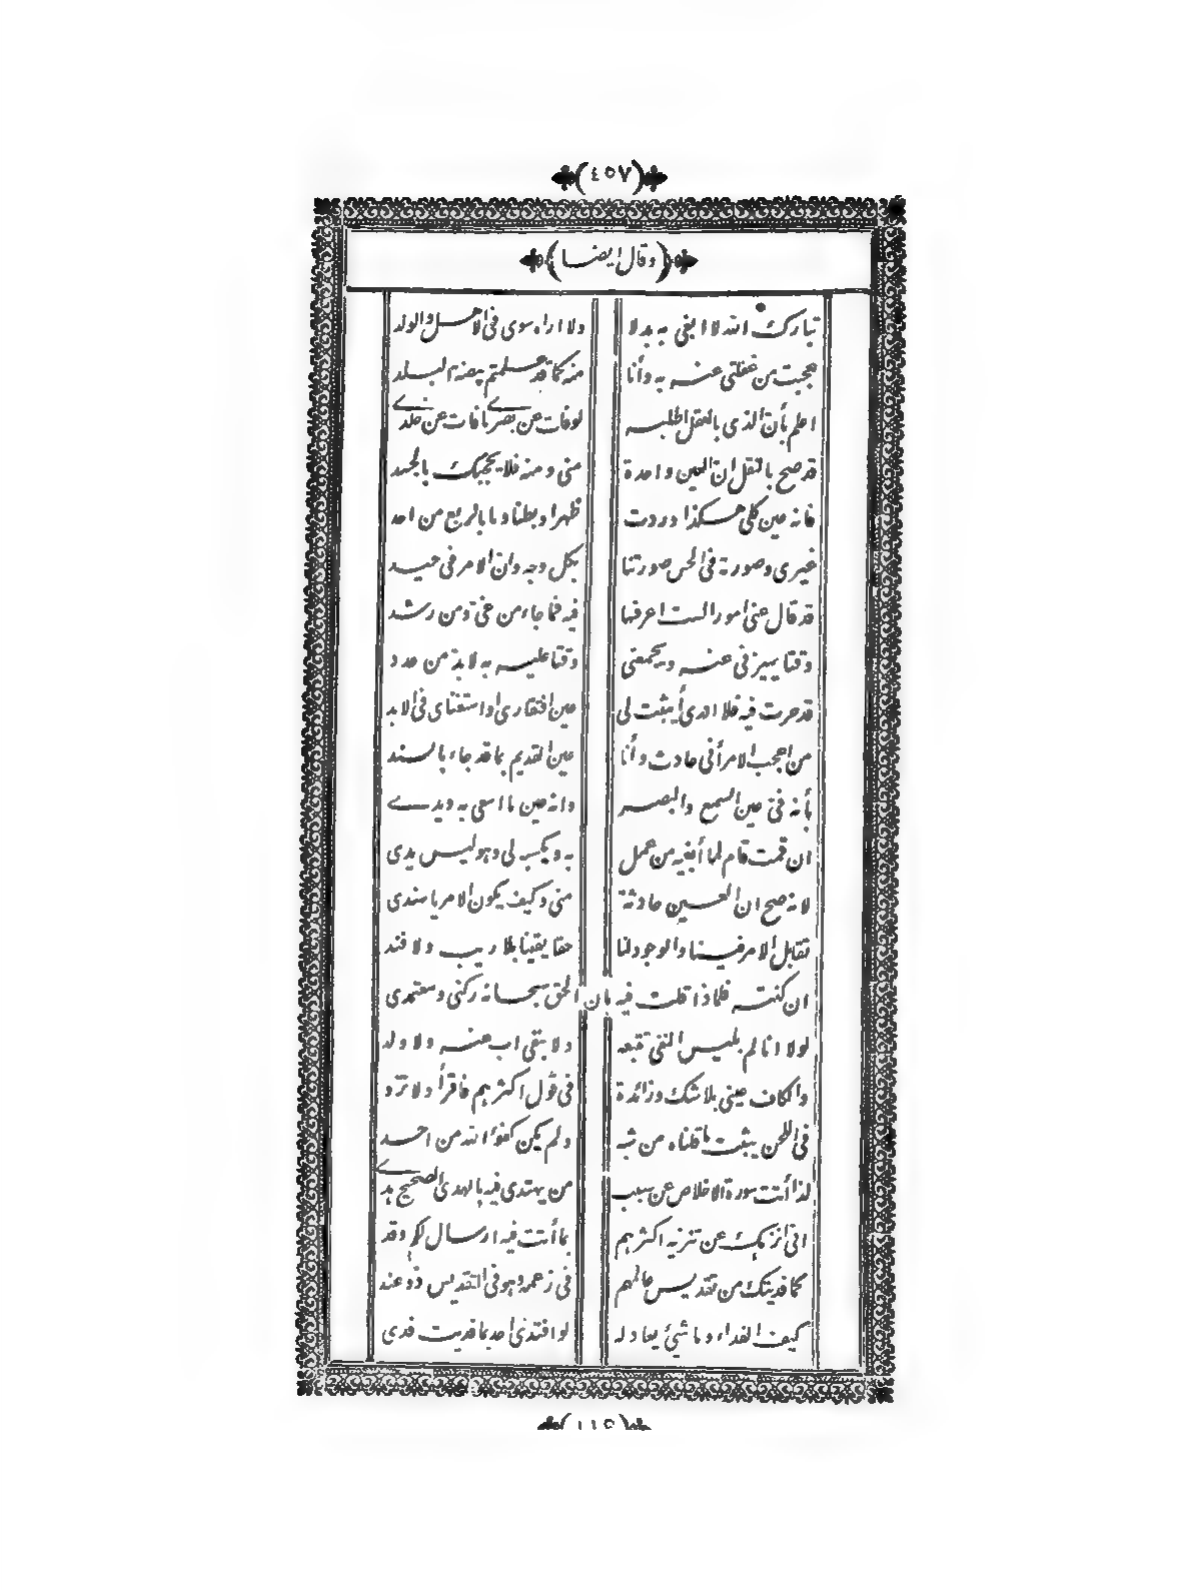 (٤٥٧)
(وقال ايضا)
تبارك الله لا ابغى به بدلا ولا اراه سوى فى الاهل والولد
عجبت من غفلتى عنه به وأنا منه كما قد علمتم بيضة البلد
اعلم بأن الذى بالعقل اطلبه لوفات عن بصرى ما فات عن خلدى
قد صح بالنقل ان العين واحدة منى ومنه فلا يحجبك بالجسد
فانه عين كلى هكذا وردت ظهرا وبطنا وما بالربع من احد
غيرى وصورة فى الحس صورتنا بكل وجه وان الامر فى حيد
قد قال عنى امورا لست اعرفها فيه فما جاء من غى ومن رشد
وقتا يميزنى عنه ويجمعنى وقتا عليه به لابد من عدد
قد حرت فيه فلا ادرى أيثبت لى عين افتقارى او استغناى فى الابد
من اعجب الامر أنى حادث وأنا عين القديم بما قد جاء بالسند
بأنه فىّ عين السمع والبصر وانه عين ما اسعى به ويدى
ان قمت قام لما أبغيه من عمل به ويكسب لى وهو ليس يدى
لانه صح ان العين حادثة منى وكيف يكون الامر يا سندى
تقابل الامر فينا والوجود لنا حقا يقينا بلا ريب ولا فند
ان كنته فلماذا قلت فيه بان الحق سبحانه ركنى ومعتمدى
لولا انا لم بليس النفى تتبعه ولا بنفى اب عنه ولا ولد
والكاف عينى بلا شك وزائدة فى قول اكثرهم فاقرأ ولا تزد
فى اللحن يثبت ما قلناه من شبه ولم يكن كفوا الله من احد
لذا أتت سورة الاخلاص عن سبب من يهتدى فيه بالهدى الصحيح هدى
انى انزهك عن تنزيه اكثرهم بما أتت فيه ارسال لكم وقد
كما فديتك من تقديس عالمهم فى زعمه وهو فى التقديس ذو عند
كيف الفداء وما شئ يعادله لو افتدى احد بما فديت فدى